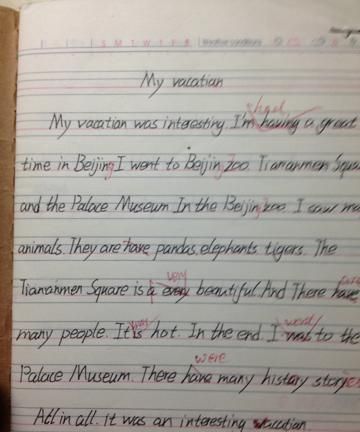 S M T W T F S
My vacation
had
My vacation was interesting. I'm having a great
time in Beijing I went to Beijing Zoo. Tiananmen Squa
and the Palace Museum In the Beijing zoo. I saw ma
animals. They are have pandas. elephants tigers. The
very
Tiananmen Square is a every beautiful. And There have
was went
many people. It is hot. In the end. I was to the
were
Palace Museum. There have many history stories
All in all. it was an interesting vacation.